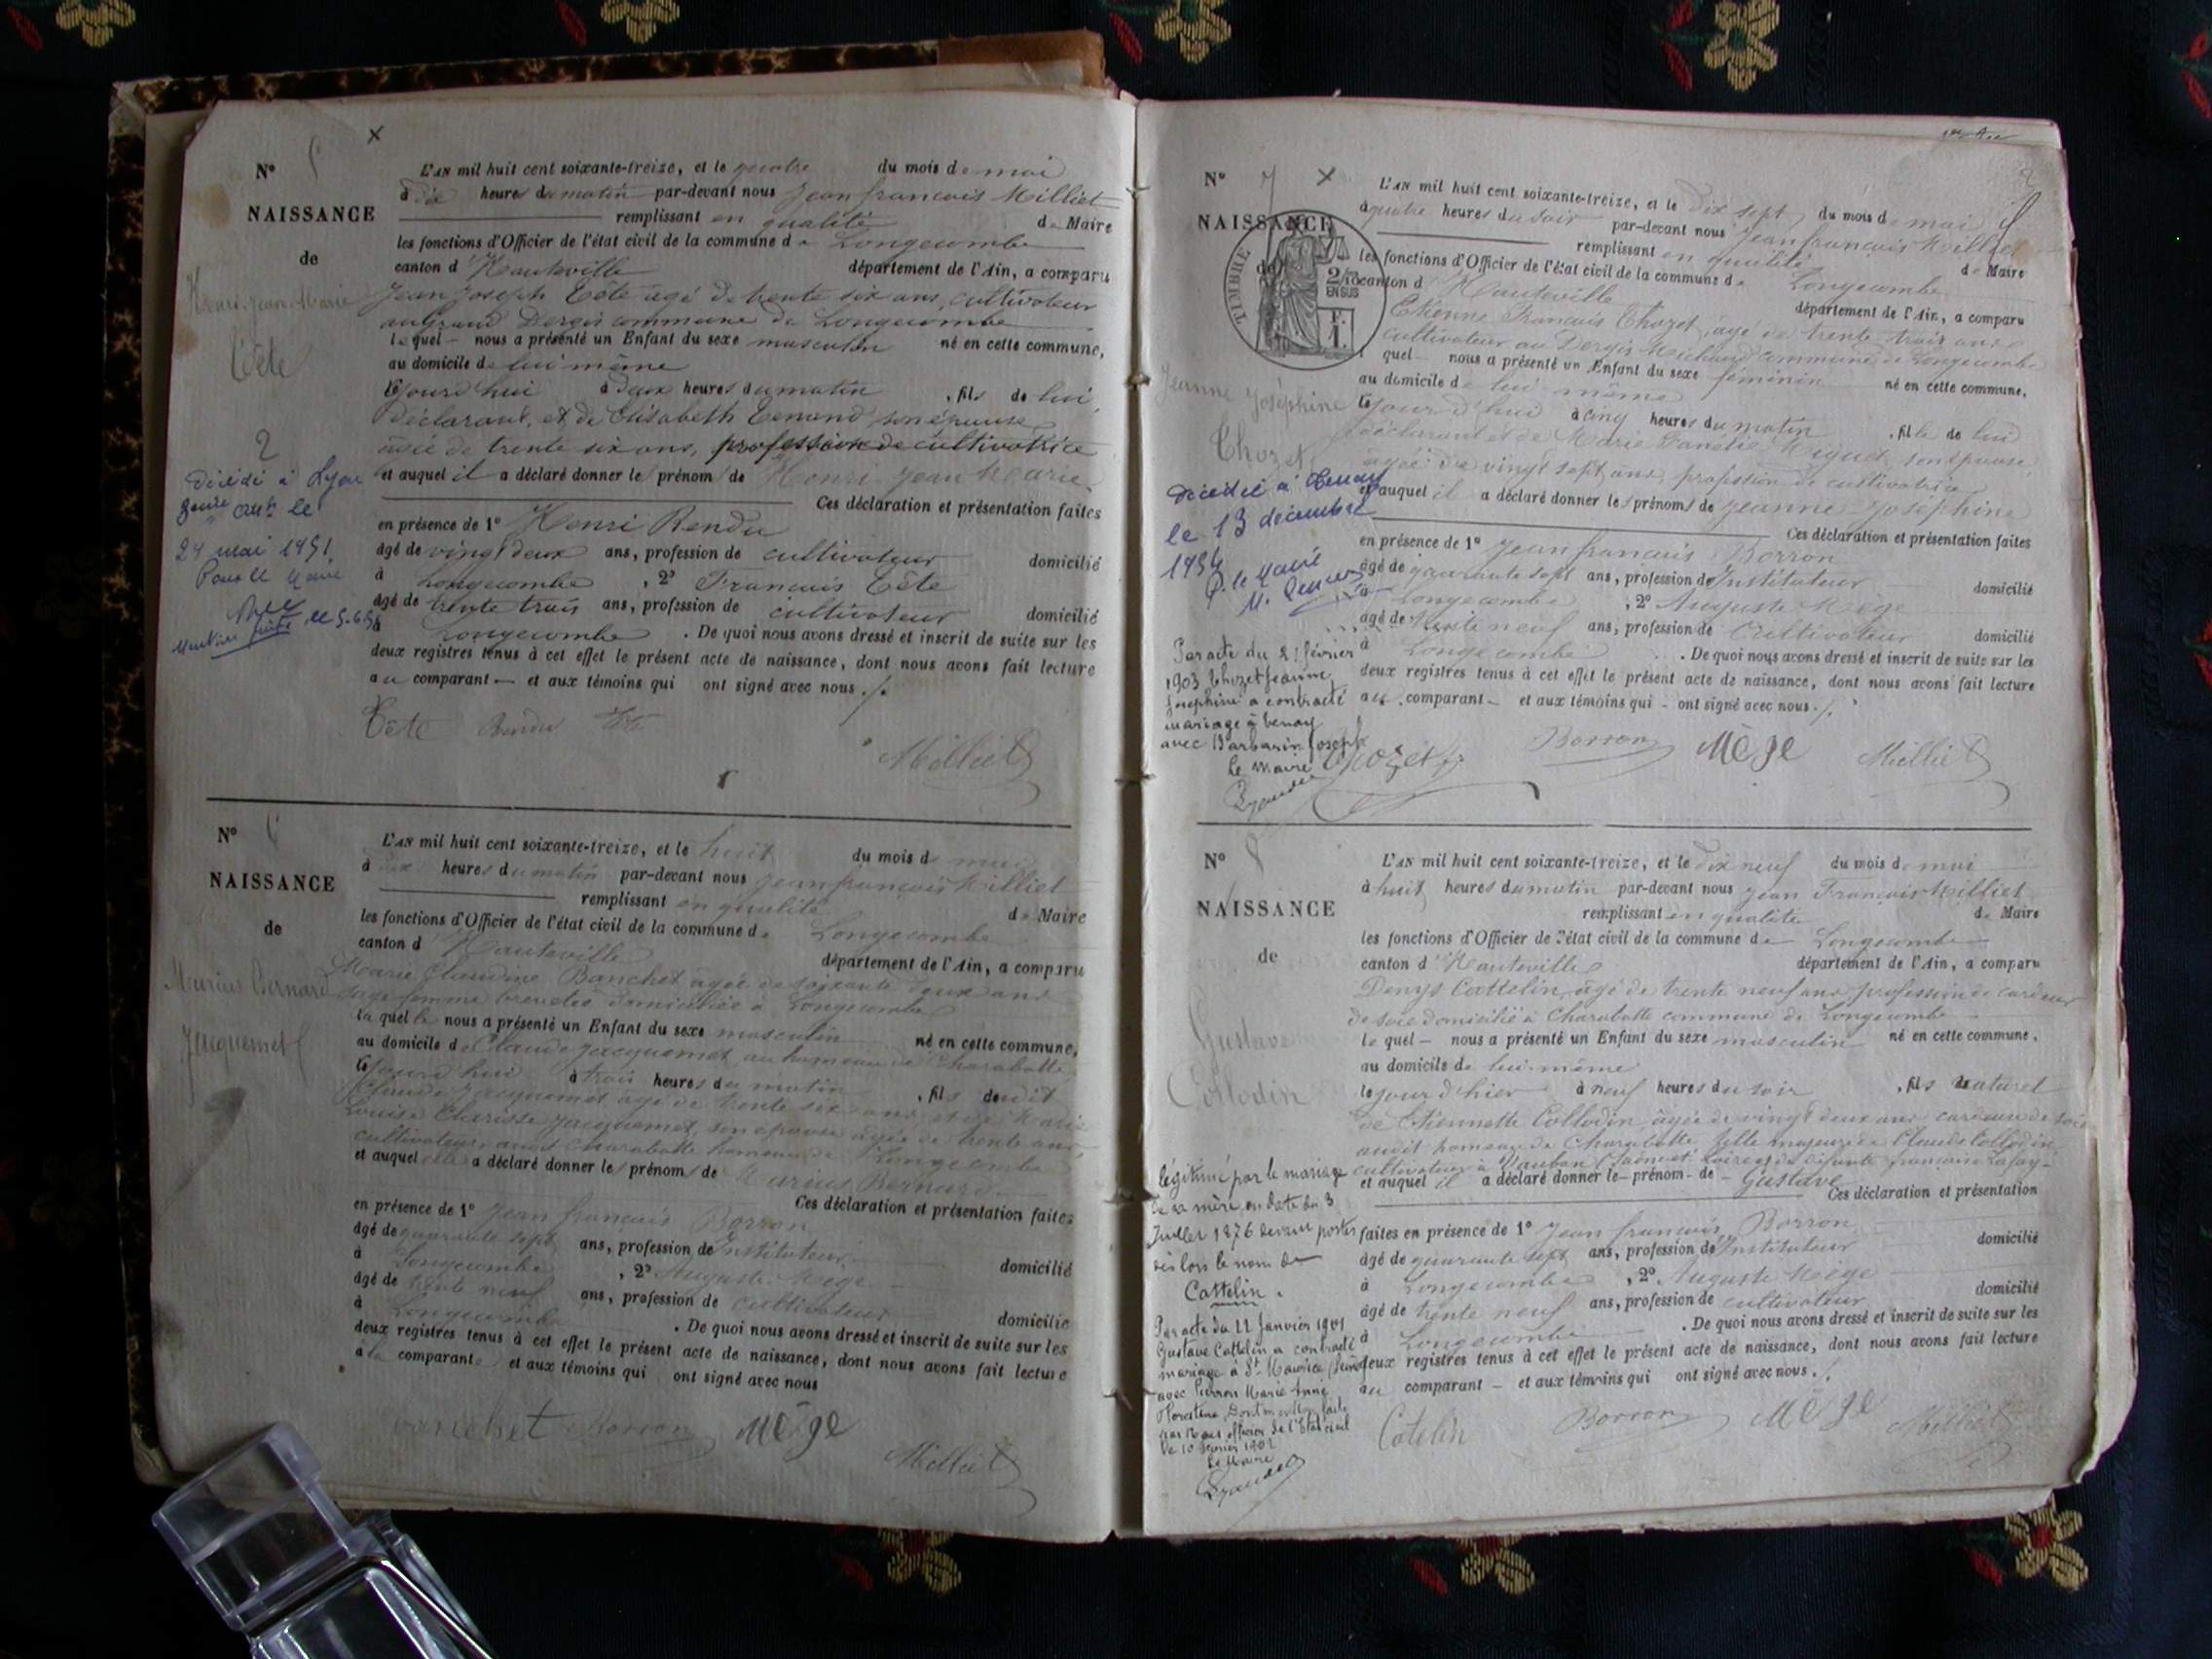 N° 5
NAISSANCE
de
Henri Jean Marie
Tête
2
Décédé à Lyon
le
24 mai 1951
Pour le Maire
L'AN mil huit cent soixante-treize, et le quatre du mois de mai
à dix heures du matin par-devant nous Jean françois Milliet
remplissant en qualité de Maire
les fonctions d'Officier de l'état civil de la commune de Longecombe
canton d'Hauteville département de l'Ain, a comparu
Jean Joseph Tête âgé de trente six ans, cultivateur
au Grand Dergis commune de Longecombe
lequel nous a présenté un Enfant du sexe masculin né en cette commune,
au domicile de lui même
ce jourd'hui à deux heures du matin, fils de lui
déclarant, et de Elisabeth Tenand son épouse
âgée de trente six ans, profession de cultivatrice
et auquel il a déclaré donner les prénoms de Henri Jean Marie
Ces déclaration et présentation faites
en présence de 1° Henri Rendu
âgé de vingt deux ans, profession de cultivateur domicilié
à Longecombe, 2° François Tête
âgé de trente trois ans, profession de cultivateur domicilié
à Longecombe. De quoi nous avons dressé et inscrit de suite sur les
deux registres tenus à cet effet le présent acte de naissance, dont nous avons fait lecture
au comparant et aux témoins qui ont signé avec nous ./.
Tête Rendu Tête
Milliet
N° 6
NAISSANCE
de
Marius Bernard
Jacquemet
L'AN mil huit cent soixante-treize, et le huit du mois de mai
à dix heures du matin par-devant nous Jean françois Milliet
remplissant en qualité de Maire
les fonctions d'Officier de l'état civil de la commune de Longecombe
canton d'Hauteville département de l'Ain, a comparu
Marie Claudine Banchet âgée de soixante deux ans
sage femme domiciliée à Longecombe
laquelle nous a présenté un Enfant du sexe masculin né en cette commune,
au domicile de Claude Jacquemet, au hameau de Charabotte
ce jourd'hui à trois heures du matin, fils dudit
Claude Jacquemet âgé de trente six ans et de Marie
Louise Clarisse Jacquemet, son épouse âgée de trente ans,
cultivateurs audit Charabotte hameau de Longecombe
et auquel elle a déclaré donner les prénoms de Marius Bernard
Ces déclaration et présentation faites
en présence de 1° Jean françois Borron
âgé de quarante sept ans, profession de Instituteur domicilié
à Longecombe, 2° Auguste Mège
âgé de trente neuf ans, profession de cultivateur domicilié
à Longecombe. De quoi nous avons dressé et inscrit de suite sur les
deux registres tenus à cet effet le présent acte de naissance, dont nous avons fait lecture
à la comparante et aux témoins qui ont signé avec nous
Banchet Borron Mège
Milliet
2
N° 7
NAISSANCE
de
TIMBRE
2/10
EN SUS
F.
1.
Jeanne Joséphine
Chozet
Décédée à Tenay
le 13 décembre
1954
P. le Maire
Par acte du 21 février
1903 Chozet Jeanne
Joséphine a contracté
mariage à Tenay
avec Barbarin Joseph
Le Maire
L'AN mil huit cent soixante-treize, et le dix sept du mois de mai
à quatre heures du soir par-devant nous Jean françois Milliet
remplissant en qualité de Maire
les fonctions d'Officier de l'état civil de la commune de Longecombe
canton d'Hauteville département de l'Ain, a comparu
Etienne François Chozet, âgé de trente trois ans
cultivateur au Dergis Michaud commune de Longecombe
lequel nous a présenté un Enfant du sexe féminin né en cette commune,
au domicile de lui même
ce jour d'hui à cinq heures du matin, fille de lui
déclarant et de Marie son épouse
âgée de vingt sept ans, profession de cultivatrice
et auquel il a déclaré donner les prénoms de Jeanne Joséphine
Ces déclaration et présentation faites
en présence de 1° Jean françois Borron
âgé de quarante sept ans, profession de Instituteur domicilié
à Longecombe, 2° Auguste Mège
âgé de trente neuf ans, profession de Cultivateur domicilié
à Longecombe. De quoi nous avons dressé et inscrit de suite sur les
deux registres tenus à cet effet le présent acte de naissance, dont nous avons fait lecture
au comparant et aux témoins qui ont signé avec nous ./.
Chozet Borron Mège Milliet
N° 8
NAISSANCE
de
Gustave
Collodin
légitimé par le mariage
de sa mère en date du 3
Juillet 1876 devra porter
dès lors le nom de
Cattelin.
Par acte du 22 Janvier 1901
Gustave Cattelin a contracté
mariage à St Maurice
avec Pierron Marie Anne
Florestine Dont mention faite
par Nous officier de l'Etat civil
le 10 février 1902
Le Maire
L'AN mil huit cent soixante-treize, et le dix neuf du mois de mai
à huit heures du matin par-devant nous Jean François Milliet
remplissant en qualité de Maire
les fonctions d'Officier de l'état civil de la commune de Longecombe
canton d'Hauteville département de l'Ain, a comparu
Denys Cattelin, âgé de trente neuf ans profession de cardeur
de soie domicilié à Charabotte commune de Longecombe
lequel nous a présenté un Enfant du sexe masculin né en cette commune,
au domicile de lui-même
le jour d'hier à neuf heures du soir, fils naturel
de Etiennette Collodin, âgée de vingt deux ans cardeuse de soie
audit hameau de Charabotte, fille majeure de Claude Collodin
cultivateur à Vauban (Saône et Loire) et de défunte françoise
et auquel il a déclaré donner le prénom de Gustave
Ces déclaration et présentation
faites en présence de 1° Jean françois Borron domicilié
âgé de quarante sept ans, profession de Instituteur
à Longecombe, 2° Auguste Mège
âgé de trente neuf ans, profession de cultivateur domicilié
à Longecombe. De quoi nous avons dressé et inscrit de suite sur les
deux registres tenus à cet effet le présent acte de naissance, dont nous avons fait lecture
au comparant et aux témoins qui ont signé avec nous ./.
Catelin Borron Mège Milliet